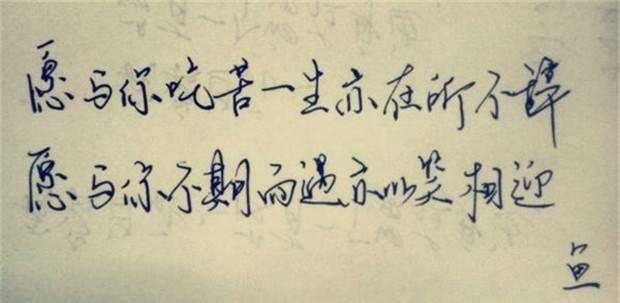 愿与你吃苦一生亦在所不辞
愿与你不期而遇亦以笑相迎
鱼